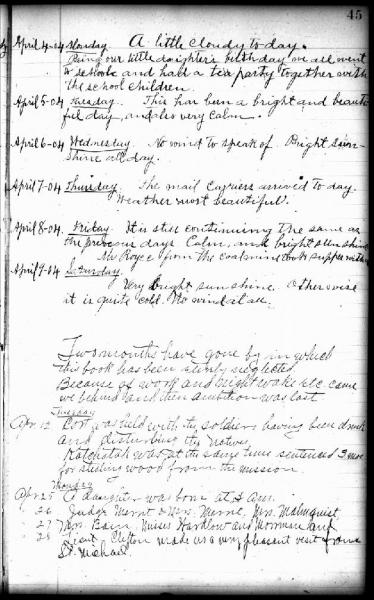 45
April 4-04 Monday. A little cloudy to day.
Being our little daughter's birthday we all went
to school and had a tea party together with
the school children.
April 5-04 Tuesday. This has been a bright and beauti
ful day, and also very calm.
April 6-04 Wednesday. No wind to speak of. Bright sun-
shine all day.
April 7-04 Thursday. The mail carriers arrived to day.
Weather most beautiful.
April 8-04 Friday. It is still continuing the same as
the previous days Calm, and bright sunshine
Mr Royce from the coalmine took supper with us
April 9-04 Saturday.
Very bright sunshine. Otherwise
it is quite cold. No wind at all.
Two months have gone by in which
this book has been neglected.
Because of work and etc. came
we behind and then ambition was lost
Tuesday
Apr. 12 Cort was held with the soldier having been drunk
and disturbing the natives.
was at the same time sentenced 3 mos
for stealing wood from the mission.
Monday
Apr. 25 A daughter was born at 3 a.m.
26 Judge & Mrs. Mrs. Malmquist
27 Mrs. Misses and and
28 Lieut. Clifton made us a very pleasant visit from
St. Michael